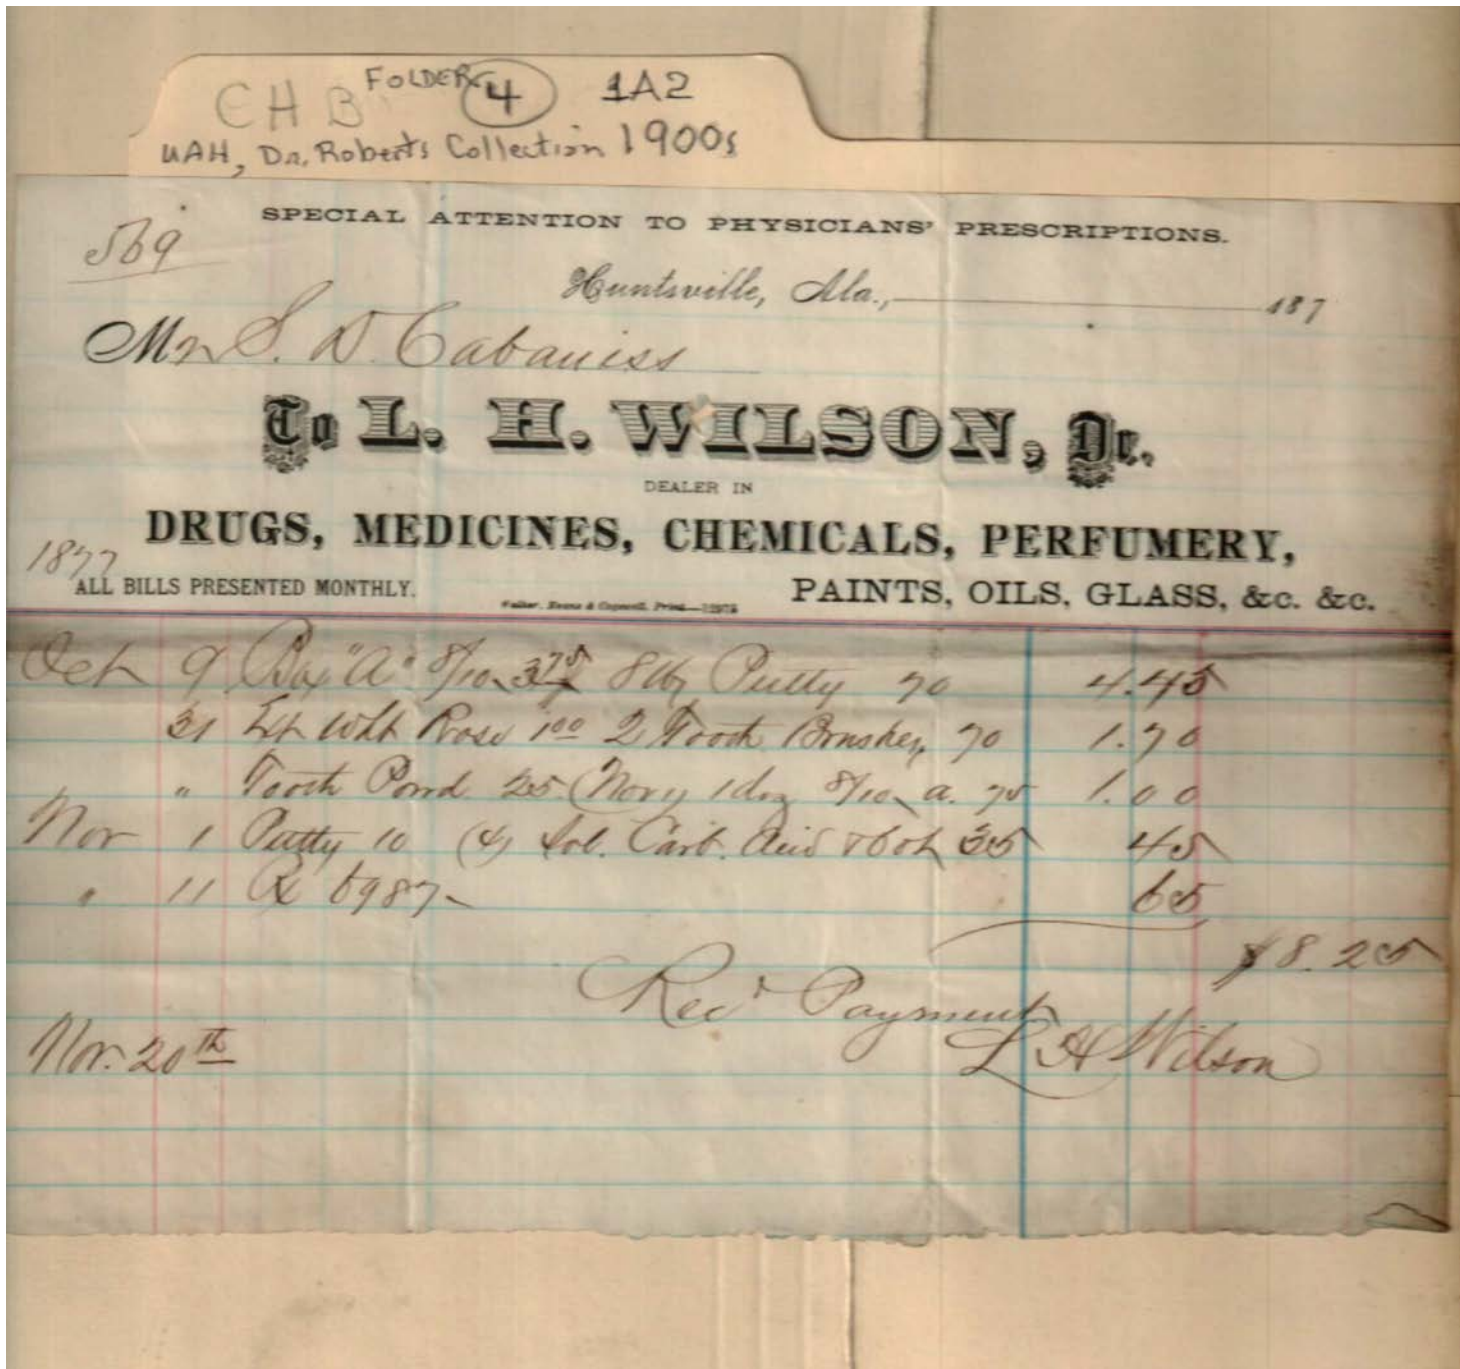 FOLDER 4 1A2
CHB
UAH, Dr. Roberts Collection 1900s
SPECIAL ATTENTION TO PHYSICIANS' PRESCRIPTIONS.
569
Huntsville, Ala., 187
Mr S. D. Cabaniss
To L. H. WILSON, Dr.
DEALER IN
DRUGS, MEDICINES, CHEMICALS, PERFUMERY,
1877
ALL BILLS PRESENTED MONTHLY. PAINTS, OILS, GLASS, &c. &c.
Walker, Evans & Cogswell, Print
Oct 9 Box "A" 8/10 375 8 lb Putty 70 4.45
31 Wht Rose 1 00 2 Tooth Brushes 70 1.70
" Tooth Powd 25 (Nov 1) 1 doz 8/10 a. 75 1.00
Nov 1 Putty 10 (4) Sol. Carb. Acid & bot 35 45
" 11 Rx 6987 65
$8.25
Recd Payment
Nov. 20th L H Wilson